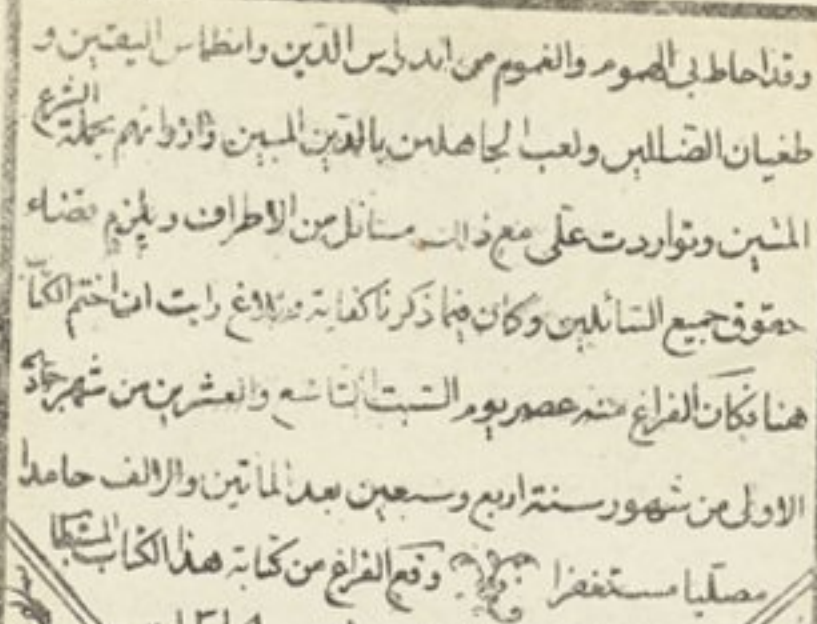 وقد احاط بی الهموم والغموم من اندراس الدین وانطماس الیقین و
طغیان الضاللین ولعب الجاهلین بالدین المبین وازدرائهم بحملة الشرع
المتین وتواردت علی مع ذلك مسائل من الاطراف ویلزم قضاء
حقوق جمیع السائلین وكان فیما ذكرنا كفایة وبلاغ رایت ان اختم الكتاب
هنا فكان الفراغ منه عصر یوم السبت التاسع والعشرین من شهر جمادی
الاولی من شهور سنة اربع وسبعین بعد الماتین والالف حامدا
مصلیا مستغفرا وقع الفراغ من كتابة هذا الكتاب المستطاب